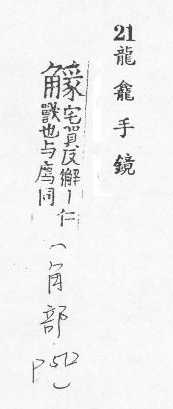 21 龍龕手鏡
宅買反獬丨仁
獸也与廌同
(角部